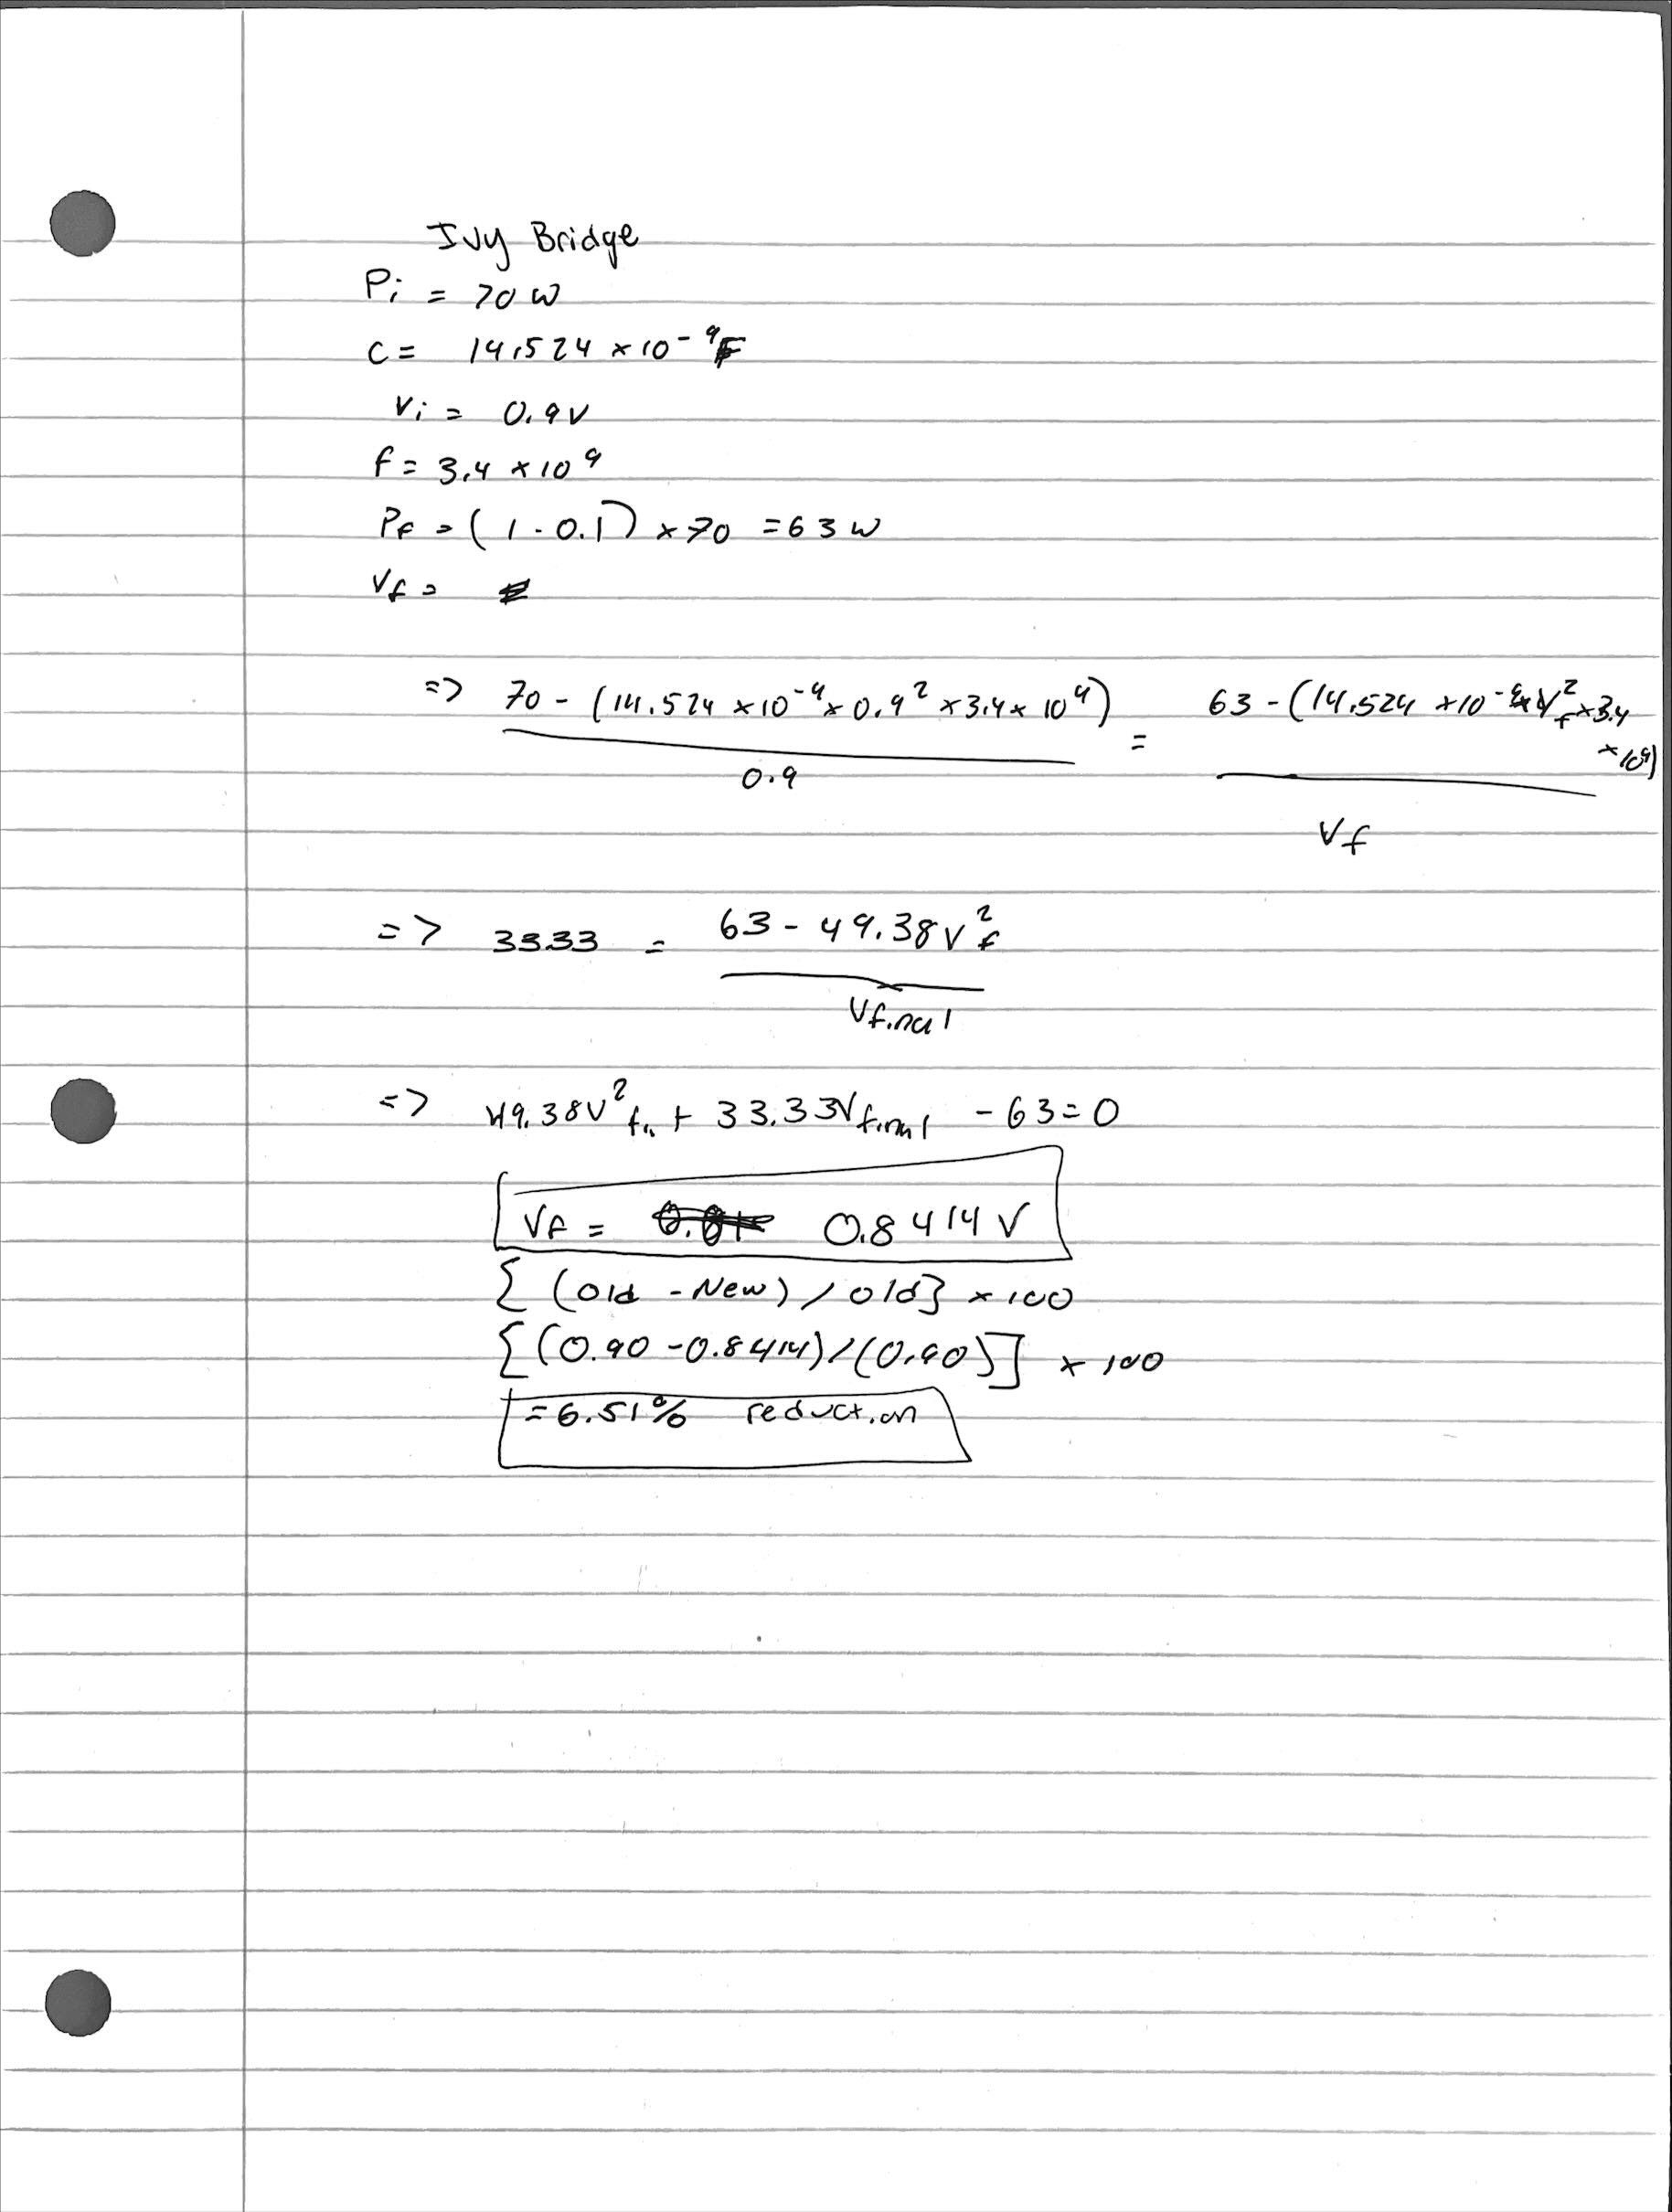 Ivy Bridge
Pi = 70 W
C = 14.524 × 10⁻⁹F
Vi = 0.9V
f = 3.4 × 10⁹
Pf = (1 - 0.1) × 70 = 63 W
Vf =
=> 70 - (14.524 × 10⁻⁹ × 0.9² × 3.4 × 10⁹) / 0.9 = 63 - (14.524 × 10⁻⁹ × Vf² × 3.4 × 10⁹) / Vf
=> 33.33 = 63 - 49.38Vf² / Vfinal
=> 49.38V²fin + 33.33Vfinal - 63 = 0
Vf = 0.8414 V
{ (Old - New) / Old} × 100
{ (0.90 - 0.8414) / (0.90)] × 100
= 6.51% reduction